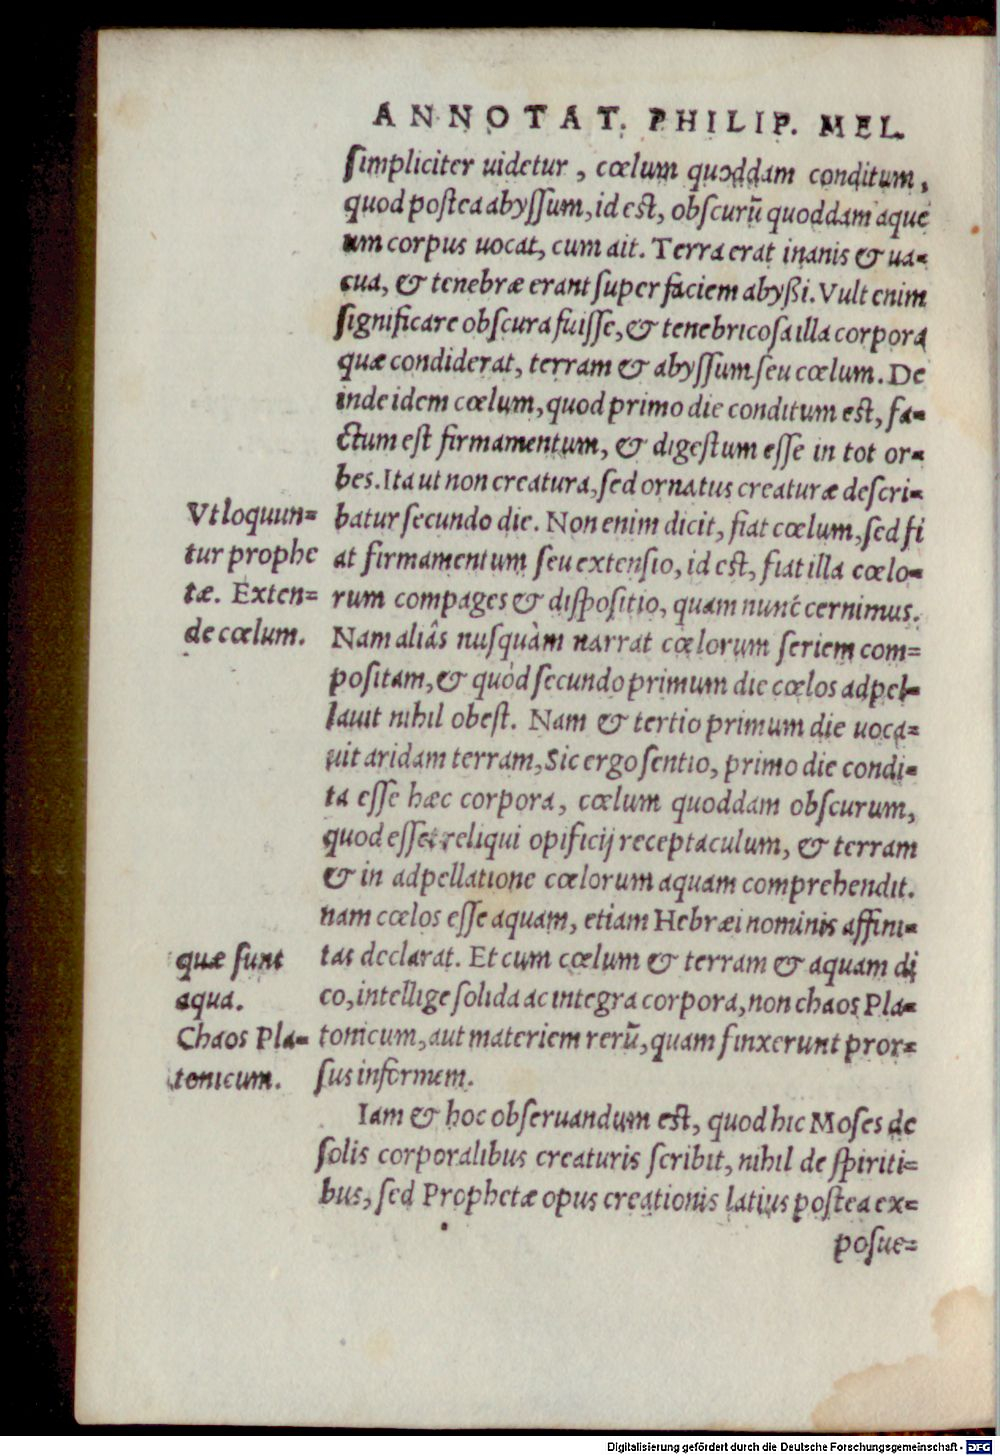 ANNOTAT. PHILIP. MEL.
ſimpliciter uidetur, cœlum quoddam conditum,
quod poſtea abyſſum, id eſt, obſcurū quoddam aque
um corpus uocat, cum ait. Terra erat inanis & ua=
cua, & tenebræ erant ſuper faciem abyßi. Vult enim
ſignificare obſcura fuiſſe, & tenebricoſa illa corpora
quæ condiderat, terram & abyſſum ſeu cœlum. De
inde idem cœlum, quod primo die conditum eſt, fa=
ctum eſt firmamentum, & digeſtum eſſe in tot or=
bes. Ita ut non creatura, ſed ornatus creaturæ deſcri=
batur ſecundo die. Non enim dicit, fiat cœlum, ſed fi
at firmamentum ſeu extenſio, id eſt, fiat illa cœlo=
rum compages & diſpoſitio, quam nunc cernimus.
Nam aliâs nuſquàm narrat cœlorum ſeriem com=
poſitam, & quòd ſecundo primum die cœlos adpel=
lauit nihil obeſt. Nam & tertio primum die uoca=
uit aridam terram, Sic ergo ſentio, primo die condi=
ta eſſe hæc corpora, cœlum quoddam obſcurum,
quod eſſet reliqui opificij receptaculum, & terram
& in adpellatione cœlorum aquam comprehendit.
nam cœlos eſſe aquam, etiam Hebræi nominis affini=
tas declarat. Et cum cœlum & terram & aquam di
co, intellige ſolida ac integra corpora, non chaos Pla=
tonicum, aut materiem rerū, quam finxerunt pror=
ſus informem.
Iam & hoc obſeruandum eſt, quod hic Moſes de
ſolis corporalibus creaturis ſcribit, nihil de ſpiriti=
bus, ſed Prophetæ opus creationis latius poſtea ex=
poſue=
Vt loquun=
tur prophe
tæ. Exten=
de cœlum.
quæ ſunt
aqua.
Chaos Pla=
tonicum.
Digitalisierung gefördert durch die Deutsche Forschungsgemeinschaft - DFG